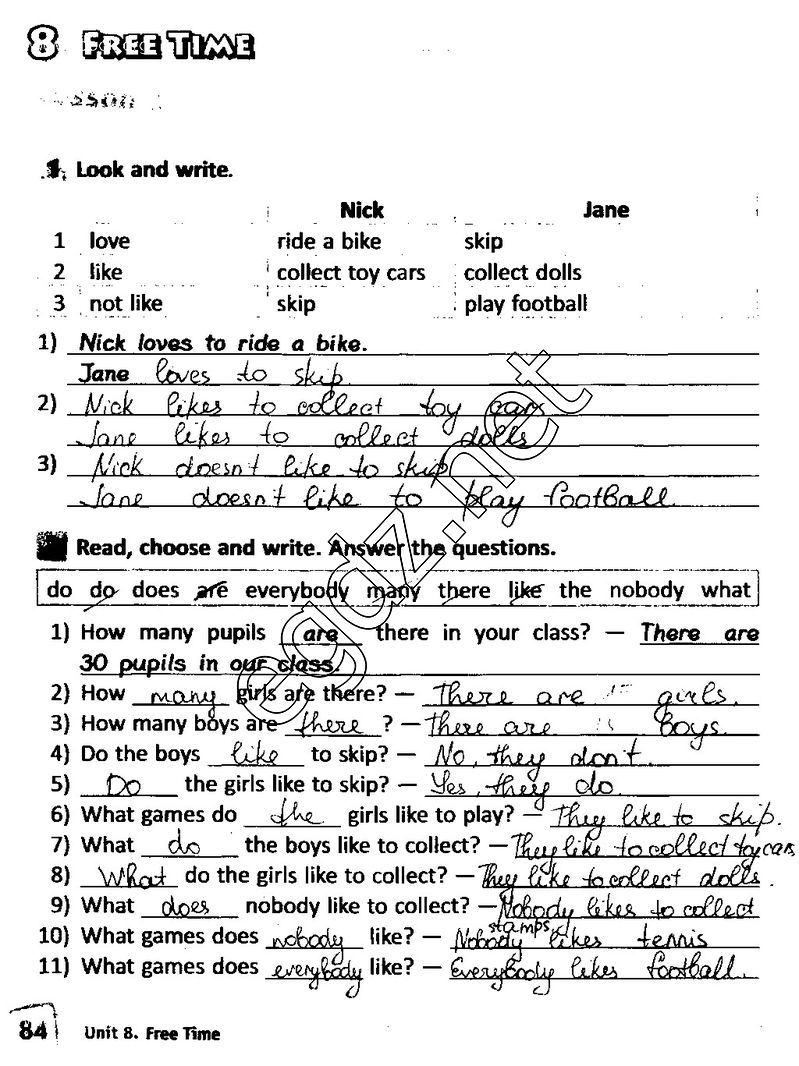 8 FREE TIME
1. Look and write.
Nick Jane
1 love ride a bike skip
2 like collect toy cars collect dolls
3 not like skip play football
1) Nick loves to ride a bike.
Jane loves to skip.
2) Nick likes to collect toy cars
Jane likes to collect dolls
3) Nick doesn't like to skip
Jane doesn't like to play football
Read, choose and write. Answer the questions.
do do does are everybody many there like the nobody what
1) How many pupils are there in your class? — There are
30 pupils in our class.
2) How many girls are there? — There are girls.
3) How many boys are there ? — There are boys.
4) Do the boys like to skip? — No, they don't.
5) Do the girls like to skip? — Yes, they do.
6) What games do the girls like to play? — They like to skip.
7) What do the boys like to collect? — They like to collect toy cars
8) What do the girls like to collect? — They like to collect dolls.
9) What does nobody like to collect? — Nobody likes to collect
stamps.
10) What games does nobody like? — Nobody likes tennis
11) What games does everybody like? — Everybody likes football.
84 Unit 8. Free Time
egdz.net